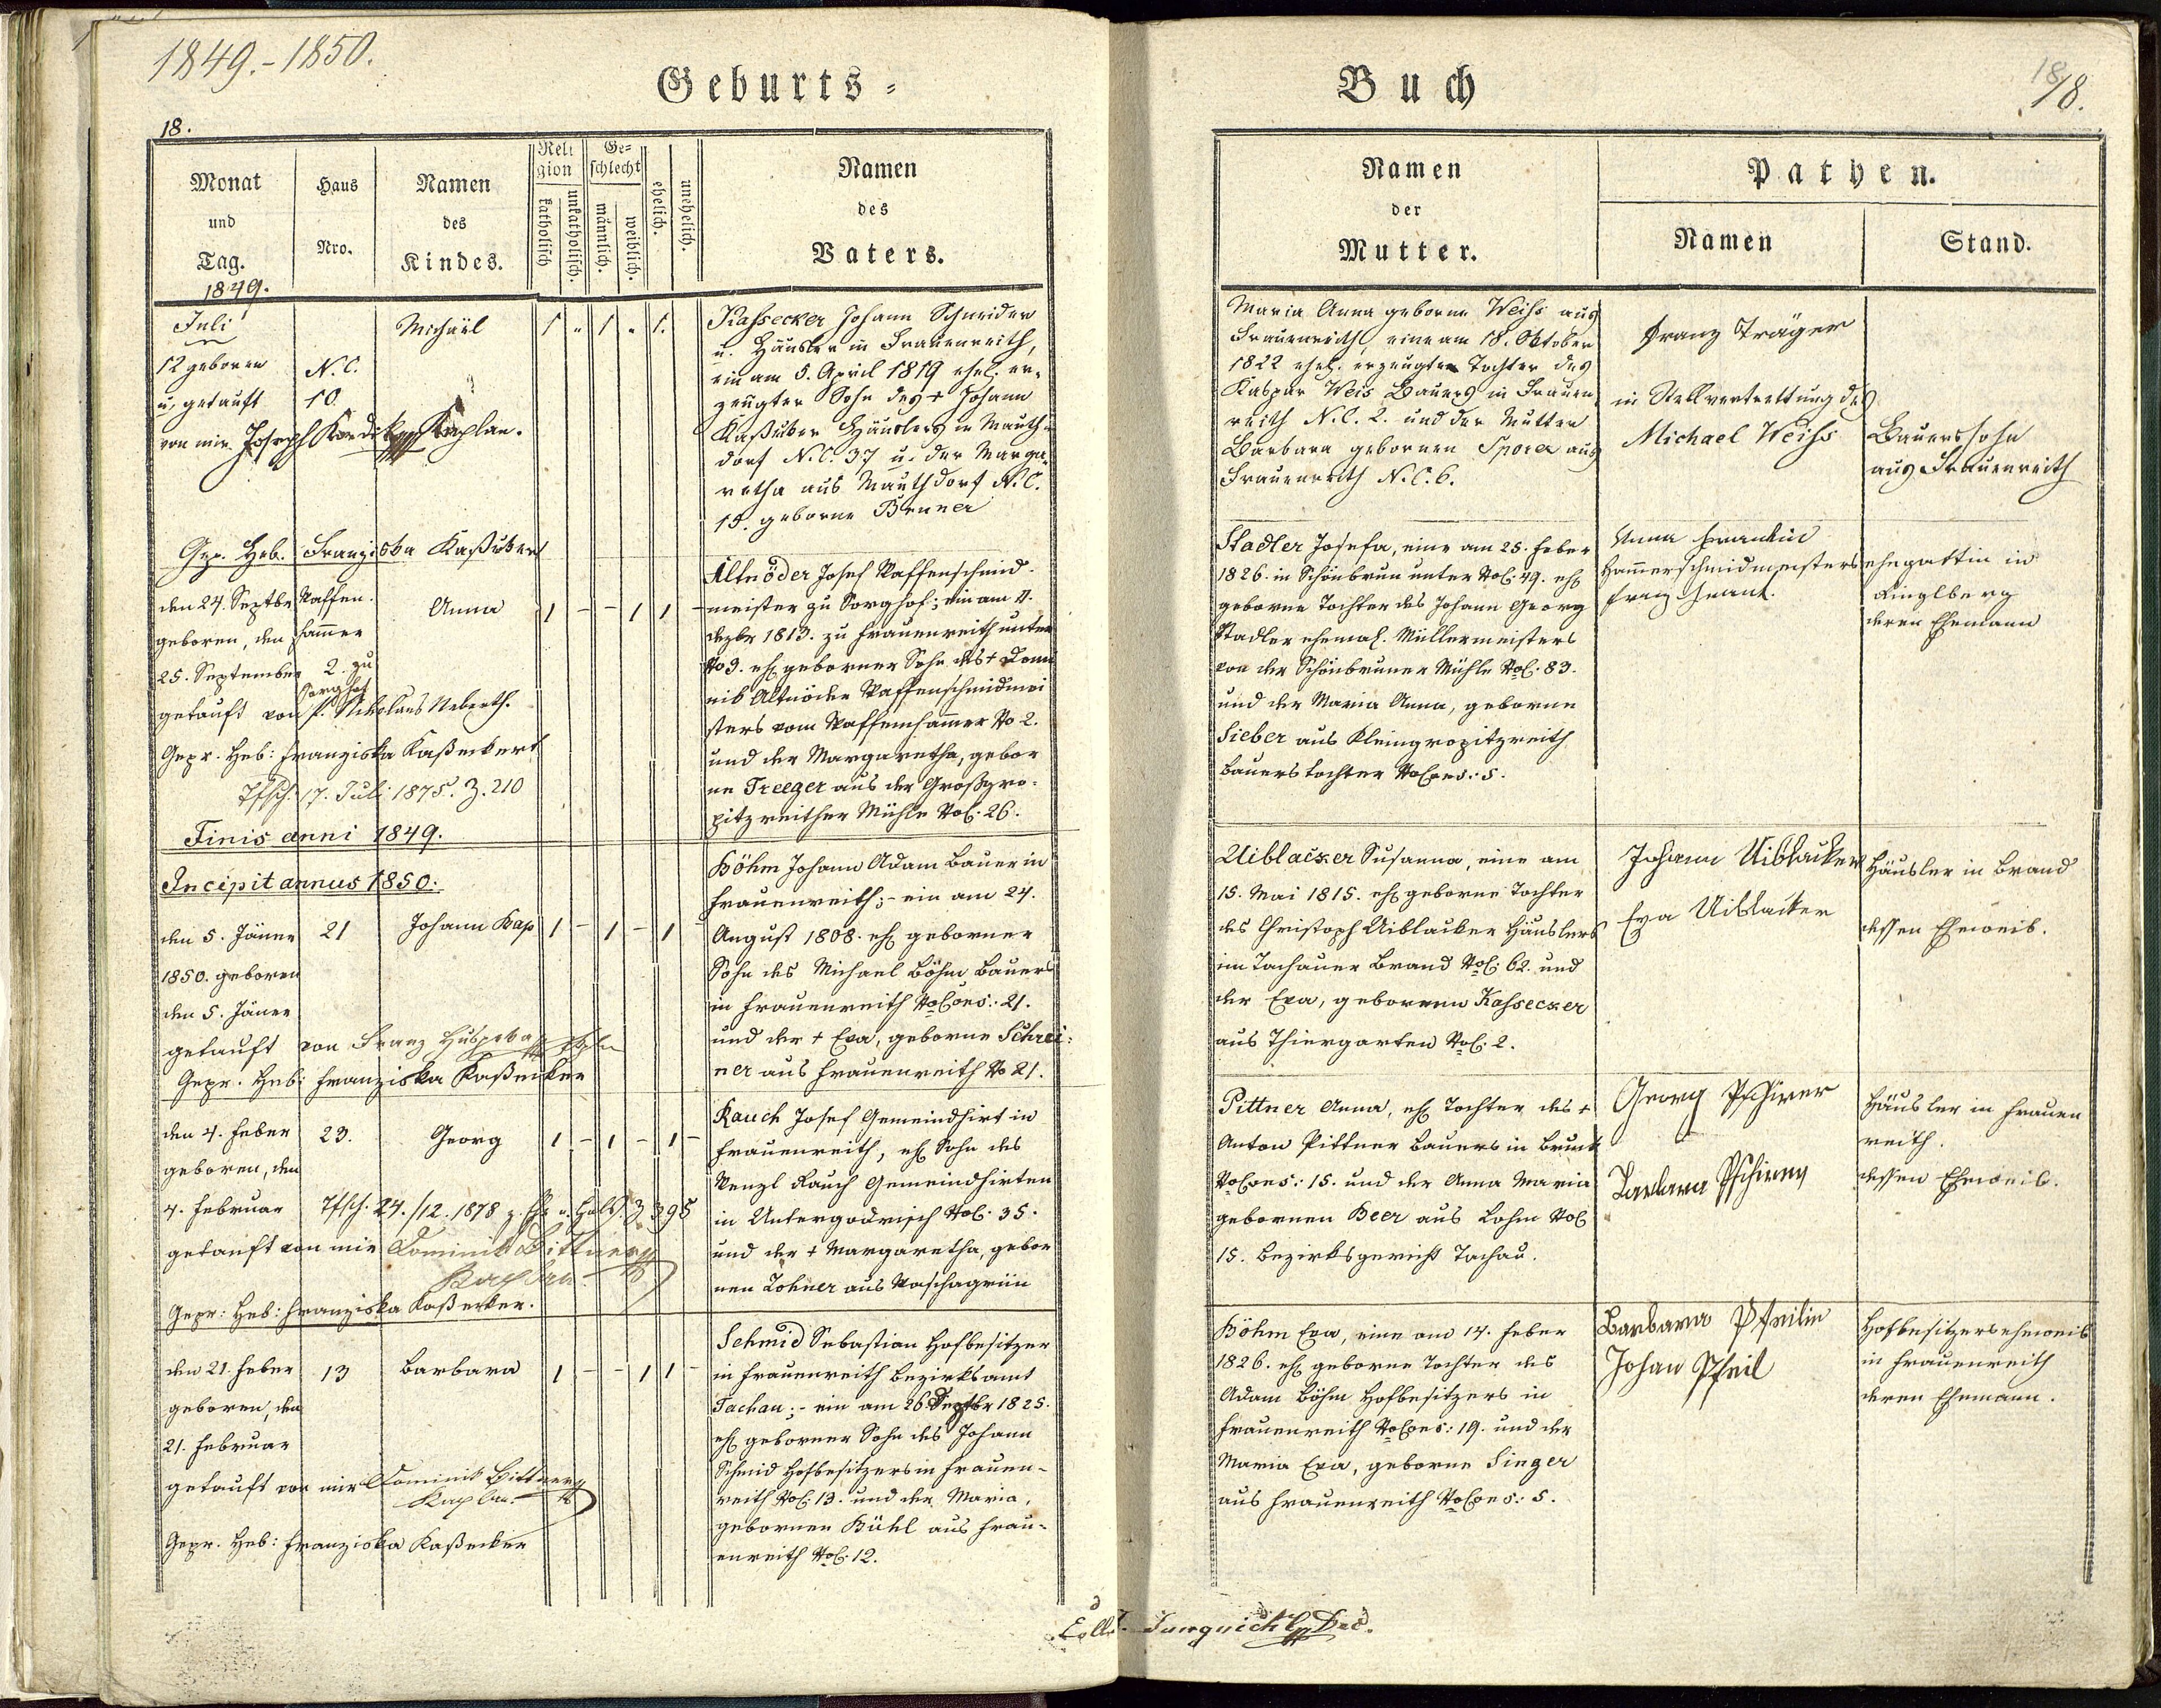 1849.-1850.
Geburts-
18.
Monat
und
Tag.
1849.
Haus
Nro.
Namen
des
Kindes.
Reli
gion
katholisch
unkatholisch.
Ge-
schlecht
männlich.
weiblich.
ehelich.
unehelich.
Namen
des
Vaters.
Juli
12 geboren
u. getauft
von mir Joseph Kaplan.
N. C.
10.
Michäel
1 " 1 " 1.
Kassecker Johann Schneider
u. Häusler in Frauenreith,
ein am 5. April 1819 ehel. er-
zeugter Sohn des + Johann
Häuslers in Mauth-
dorf N. C. 37 u. der Marga-
retha aus Mauthdorf N. C.
15. geborne Bruner
Gep. Heb. Franziska
den 24. Septbr
geboren, den
25. September
getauft von P. Nikolaus
Waffen-
hammer
2. zu
Sorghof
Anna
1 - - 1 1 -
Gepr. Heb: Franziska Kaßeckert
Tfsch. 17. Juli 1875. Z. 210
Altnöder Josef Waffenschmid-
meister zu Sorghof; ein am 4.
Dezbr 1813. zu Frauenreith unter
No 3. ehl geborner Sohn des + Domi
nik Altnöder Waffenschmidmei
sters vom Waffenhammer No 2.
und der Margaretha, gebor
ne Treeger aus der Großgro-
pitzreither Mühle NoC. 26.
Finis anni 1849.
Incipit annus 1850:
den 5. Jäner
1850. geboren
den 5. Jäner
getauft von Franz
21
Johann Bap
1 - 1 - 1 -
Gepr. Heb: Franziska Kaßecker
Böhm Johann Adam Bauer in
Frauenreith; - ein am 24.
August 1808. ehl geborner
Sohn des Michael Böhm Bauers
in Frauenreith NoCons: 21.
und der + Eva, geborne Schrei:
ner aus Frauenreith No 21.
den 4. Feber
geboren, den
4. Februar
getauft von mir Dominik Bittner
Kaplan
23.
Georg
1 - 1 - 1 -
Tfsch. 24./12. 1878 Z 395
Gepr: Heb: Franziska Kaßecker.
Rauch Josef Gemeindhirt in
Frauenreith, ehl Sohn des
Wenzl Rauch Gemeindhirten
in Untergodrisch NoC. 35.
und der + Margaretha, gebor
nen Lohner aus Waschagrün
den 21. Feber
geboren, den
21. Februar
getauft von mir Dominik Bittner
Kaplan
13
Barbara
1 - - 1 1 -
Gepr. Heb: Franziska Kaßecker
Schmid Sebastian Hofbesitzer
in Frauenreith Bezirksamt
Tachau; - ein am 26 Septbr 1825.
ehl geborner Sohn des Johann
Schmid Hofbesitzers in Frauen-
reith NoC. 13. und der Maria,
gebornen Bühl aus Frau-
enreith NoC. 12.
Buch
18
18.
Namen
der
Mutter.
Pathen.
Namen
Stand.
Maria Anna geborne Weiss aus
Frauenreith, eine am 18. Oktober
1822 ehel. erzeugte Tochter des
Kaspar Weis Bauers in Frauen
reith N. C. 2. und der Mutter
Barbara gebornen Sporer aus
Frauenreith N. C. 6.
Franz Träger
in Stellvertrettung des
Michael Weiss
Bauerssohn
aus Frauenreith
Stadler Josefa, eine am 25. Feber
1826. in Schönbrun unter NoC. 49. ehl
geborne Tochter des Johann Georg
Stadler ehemal. Müllermeisters
von der Schönbruner Mühle NoC. 83.
und der Maria Anna, geborne
Sieber aus Kleingropitzreith
Bauerstochter NoCons: 5.
Anna Frankin
Hammerschmidmeisters
Franz Frank.
ehegattin in
Ringlberg
deren Ehemann
Uiblacker Susanna, eine am
15. Mai 1815. ehl geborne Tochter
des Christoph Uiblacker Häuslers
im Tachauer Brand NoC. 62. und
der Eva, gebornen Kassecker
aus Thiergarten NoC. 2.
Johann Uiblacker
Eva Uiblacker
Häusler in Brand
dessen Eheweib.
Pittner Anna, ehl Tochter des +
Anton Pittner Bauers in Brunt
NoCons: 15. und der Anna Maria
gebornen Beer aus Lohm NoC
15. Bezirksgericht Tachau.
Georg Pschirer
Barbara
Häusler in Frauen
reith.
dessen Eheweib.
Böhm Eva, eine am 14. Feber
1826. ehl geborne Tochter des
Adam Böhm Hofbesitzers in
Frauenreith NoCons: 19. und der
Maria Eva, geborne Singer
aus Frauenreith NoCons: 5.
Barbara Pfeilin
Johan Pfeil
Hofbesitzerseheweib
in Frauenreith
deren Ehemann.